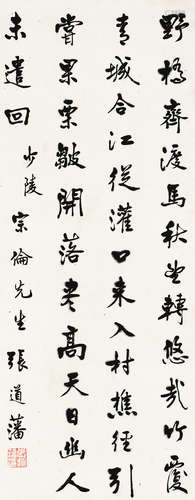 野橋齊渡馬秋望轉悠哉竹覆
青城合江從灌口來入村樵徑引
嘗果栗皺開落盡高天日幽人
未遣回 少陵 宗倫先生 張道藩